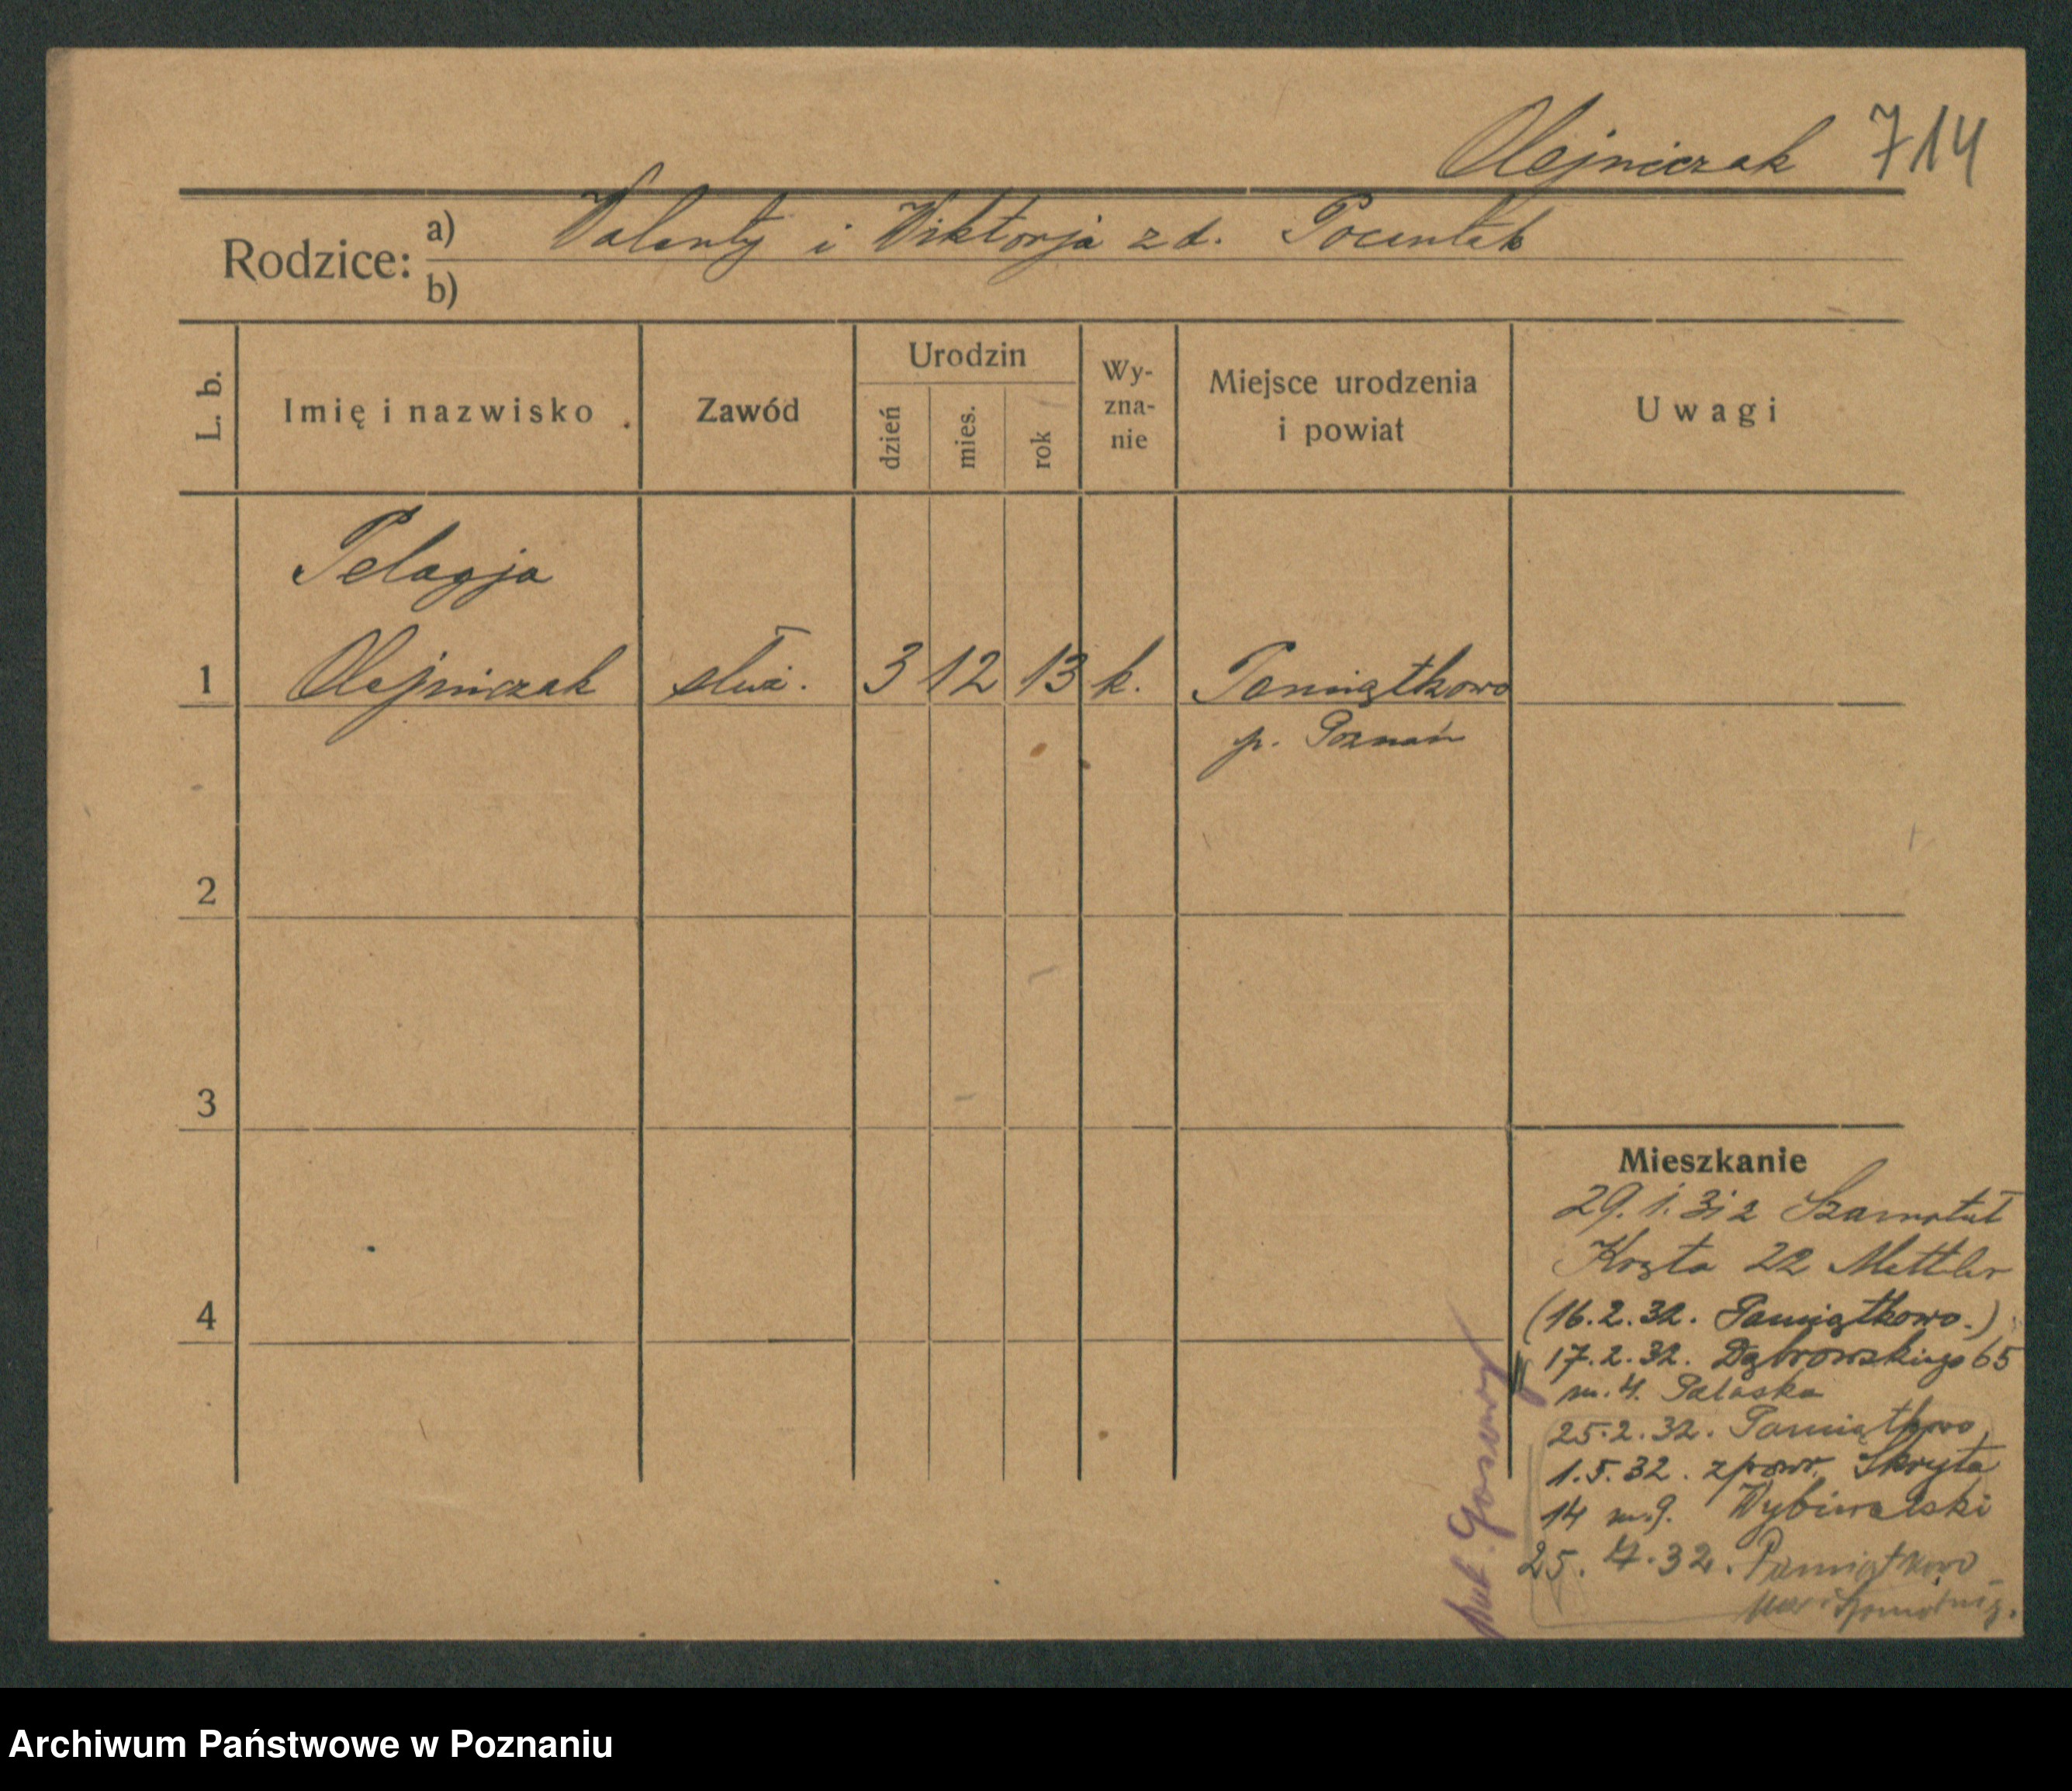 Olejniczak 714
Rodzice: a) Walenty i Wiktorja z d. Pocentek
b)
L. b.
Imię i nazwisko
Zawód
Urodzin
dzień
mies.
rok
Wy-
zna-
nie
Miejsce urodzenia
i powiat
Uwagi
Pelagja
1 Olejniczak służ. 3 12 13 k. Pamiątkowo
p. Poznań
2
3
4
Mieszkanie
29. 1. 32
Kręta 22 Mettler
(16.2.32. Pamiątkowo.)
17.2.32. Dąbrowskiego 65
m. 4.
25.2.32. Pamiątkowo
1.5.32. zpowr. Skryta
14 m. 9.
25. 7. 32. Pamiątkowo
Archiwum Państwowe w Poznaniu